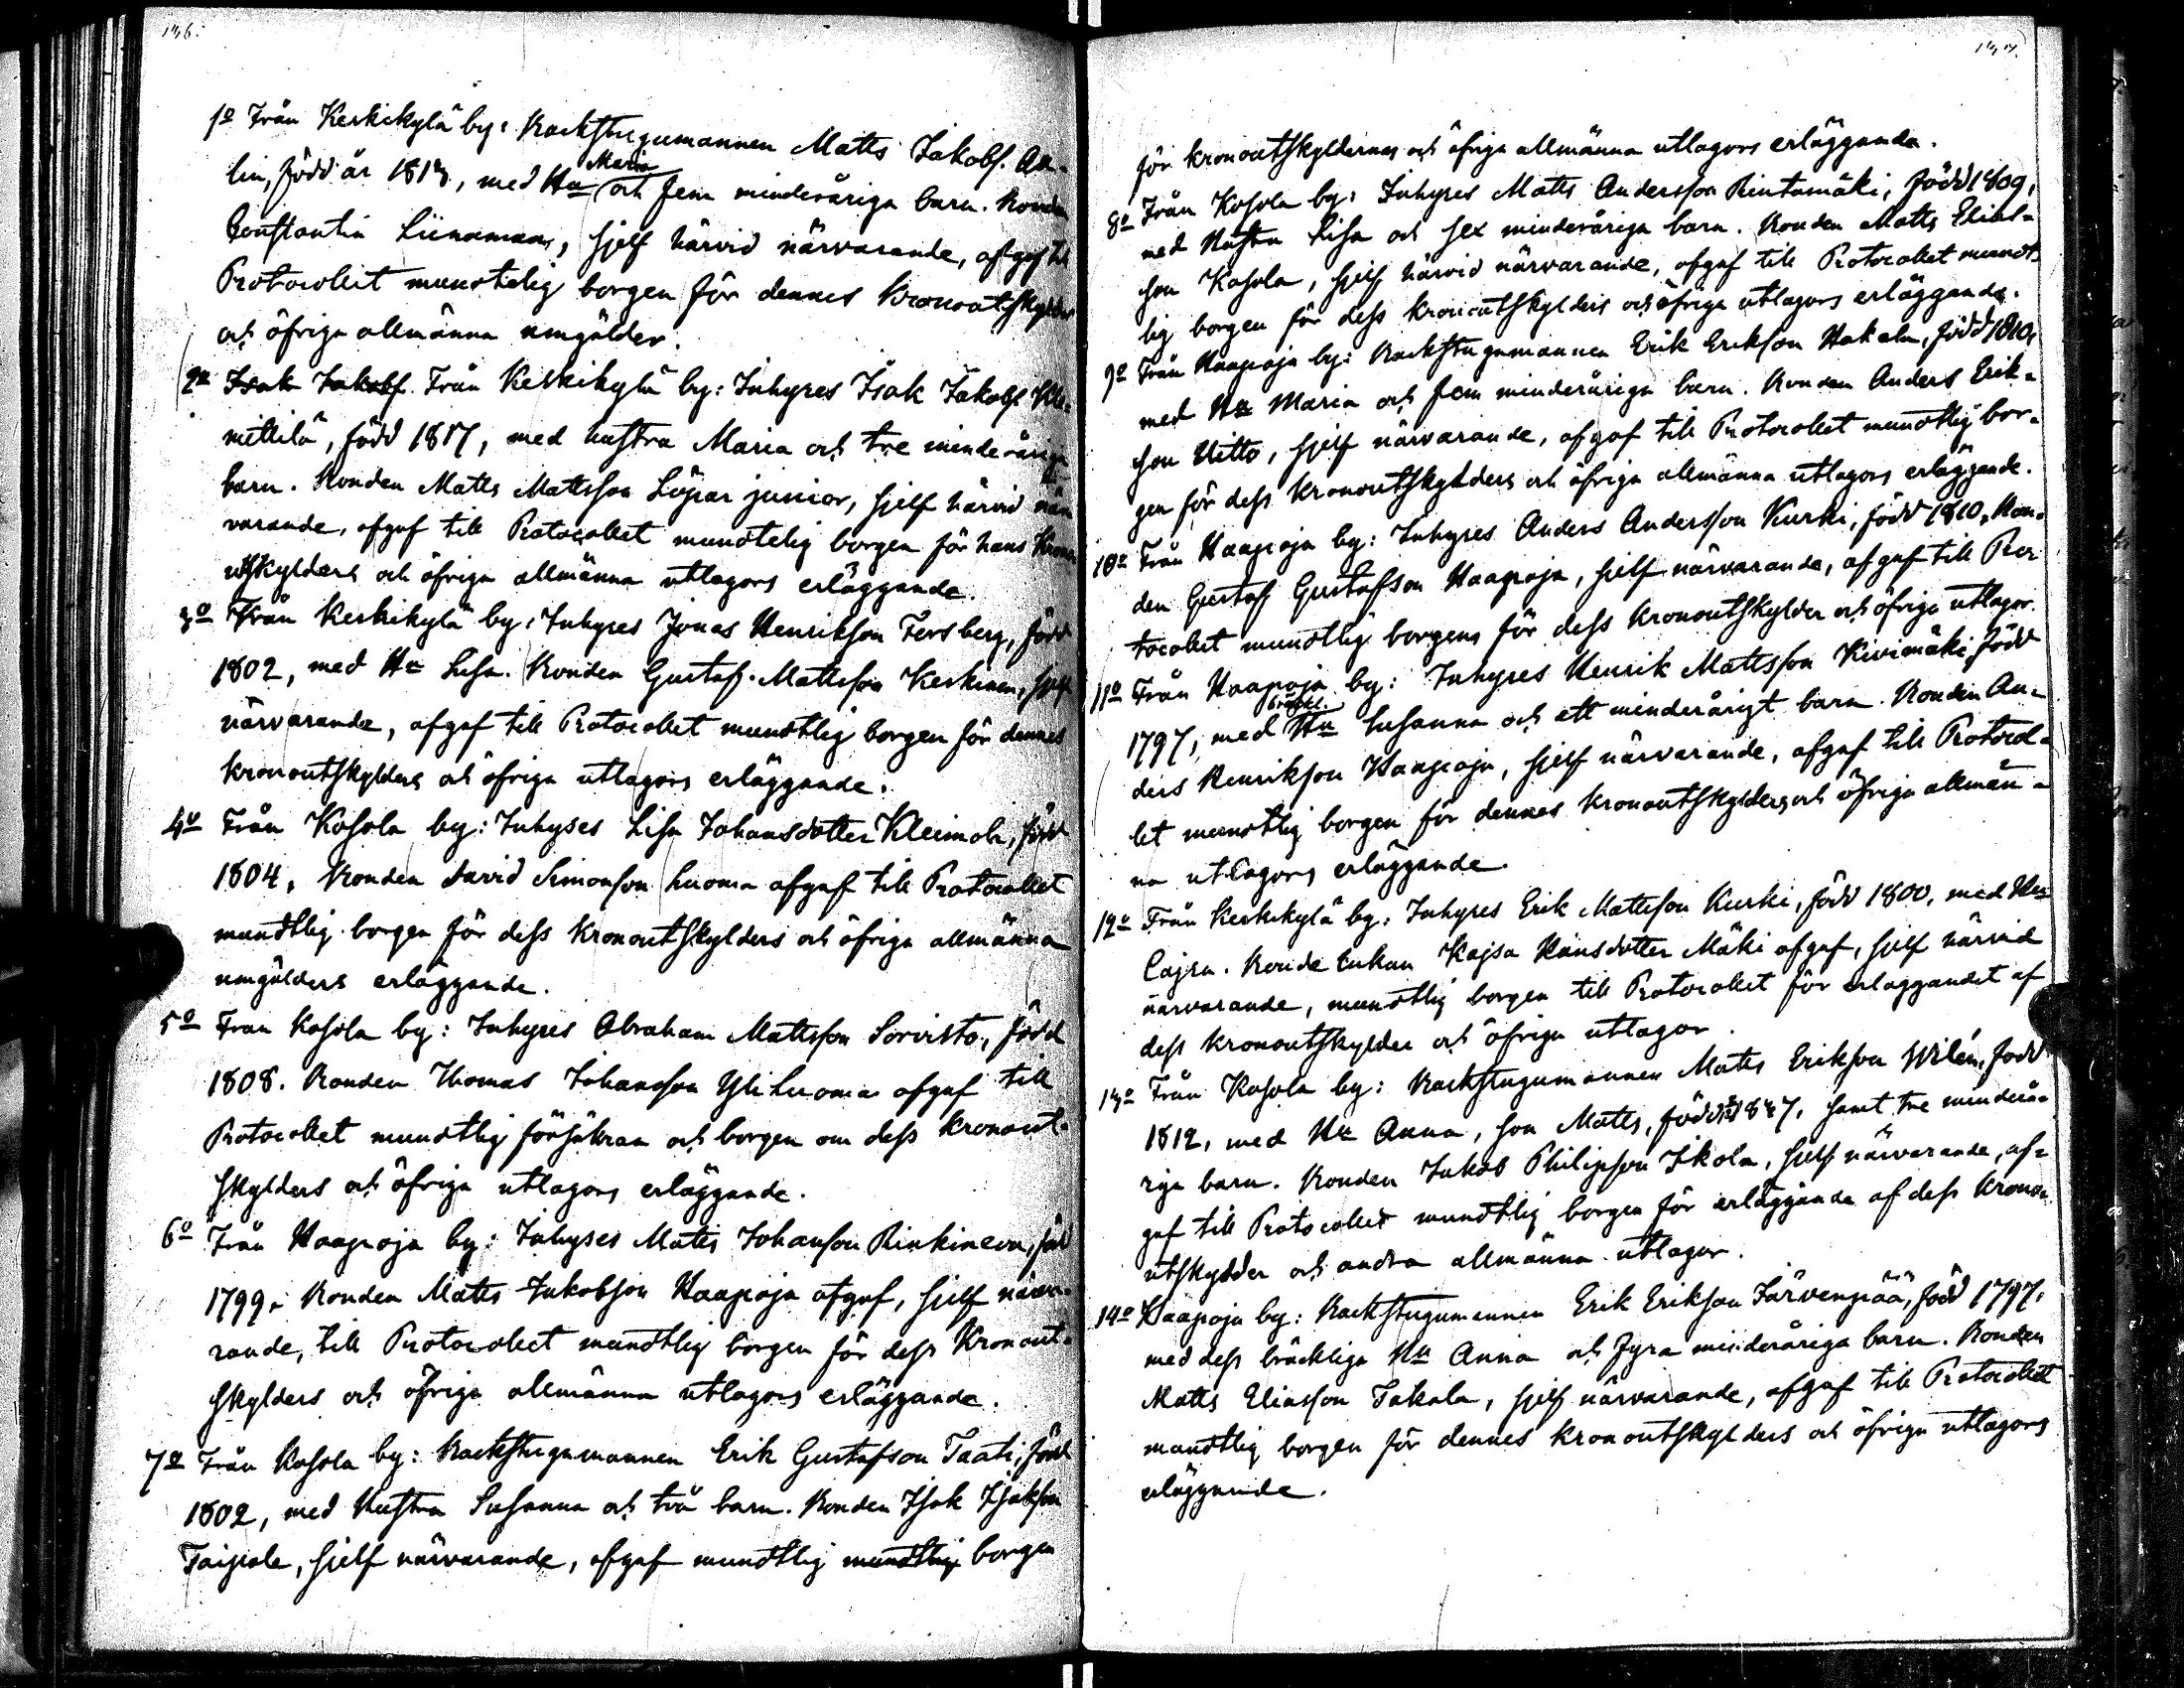 136.
1º Från Keskikylä by: Backstugumannen Matts Jakobs.
lin, född år 1813, med Hu Maria och fem minderåriga barn. Bonden
Constantin Liinamaa, sjelf härvid närvarande, afgaf till
Protocollet mundtelig borgen för dennes Kronoutskylder
och öfriga allmänna umgälder.
2º Isak Jakobs. Från Keskikylä by: Inhyses Isak Jakobs. Kle-
mettilä, född 1817, med hustru Maria och tre minderåriga
barn. Bonden Matts Mattsson Löpar junior, sjelf härvid när
varande, afgaf till Protocollet mundtelig borgen för hans Krono
utskylders och öfriga allmänna utlagors erläggande.
3º Från Keskikylä by: Inhyses Jonas Henriksson Forsberg, född
1802, med Hu Lisa. Bonden Gustaf Mattsson Keskinen, sjelf
närvarande, afgaf till Protocollet mundtlig borgen för dennes
kronoutskylders och öfriga utlagors erläggande.
4º Från Kosola by: Inhyses Lisa Johansdotter Kleimola, född
1804. Bonden David Simonsson Luoma afgaf till Protocollet
mundtlig borgen för dess Kronoutskylders och öfriga allmänna
umgälders erläggande.
5º Från Kosola by: Inhyses Abraham Mattsson Sorvisto, född
1808. Bonden Thomas Johansson Yliluoma afgaf till
Protocollet mundtlig försäkran och borgen om dess kronout-
skylders och öfriga utlagors erläggande.
6º Från Haapoja by: Inhyses Matts Johansson Rinkineva, född
1799. Bonden Matts Jakobsson Haapoja afgaf, sjelf närva-
rande, till Protocollet mundtlig borgen för dess Kronout-
skylders och öfriga allmänna utlagors erläggande.
7º Från Kosola by: Backstugumannen Erik Gustafsson Taati, född
1802, med Hustru Susanna och två barn. Bonden Isak Isaksson
Taipale, sjelf närvarande, afgaf mundtlig mundtlig borgen
137.
för kronoutskyldernas och öfriga allmänna utlagors erläggande.
8º Från Kosola by: Inhyses Matts Andersson Rintamäki, född 1809,
med Hustru Lisa och sex minderåriga barn. Bonden Matts Elias-
son Kosola, sjelf härvid närvarande, afgaf till Protocollet mundt-
lig borgen för dess kronoutskylders och öfriga utlagors erläggande.
9º Från Haapoja by: Backstugumannen Erik Eriksson Hakala, född 1810,
med Hu Maria och fem minderåriga barn. Bonden Anders Erik-
son Uitto, sjelf närvarande, afgaf till Protocollet mundtlig bor-
gen för dess Kronoutskylders och öfriga allmänna utlagors erläggande.
10º Från Haapoja by: Inhyses Anders Andersson Kurki, född 1810. Bon-
den Gustaf Gustafsson Haapoja, sjelf närvarande, afgaf till Pro-
tocollet mundtlig borgens för dess Kronoutskylder och öfriga utlagor.
11º Från Haapoja by: Inhyses Henrik Mattsson Kivimäki, född
1797, med bräckl. Hu Susanna och ett minderårigt barn. Bonden An-
ders Henriksson Haapoja, sjelf närvarande, afgaf till Protocol-
let mundtlig borgen för dennes kronoutskylders och öfriga allmän-
na utlagors erläggande.
12º Från Keskikylä by: Inhyses Erik Mattsson Kurki, född 1800, med Hu
Cajsa. Bonde Enkan Kajsa Hansdotter Mäki afgaf, sjelf härvid
närvarande, mundtlig borgen till Protocollet för erläggandet af
dess kronoutskylder och öfriga utlagor.
13º Från Kosola by: Backstugumannen Matts Eriksson Wilén, född
1812, med Hu Anna, son Matts, född 1847, samt tre minderå-
riga barn. Bonden Jakob Philipsson Ikola, sjelf närvarande, af-
gaf till Protocollet mundtlig borgen för erläggande af dess krono-
utskylder och andra allmänna utlagor.
14º Haapoja by: Backstugumannen Erik Eriksson Järvenpää, född 1797,
med dess bräckliga Hu Anna och fyra minderåriga barn. Bonden
Matts Eliasson Takala, sjelf närvarande, afgaf till Protocollet
mundtlig borgen för dennes kronoutskylders och öfriga utlagors
erläggande.